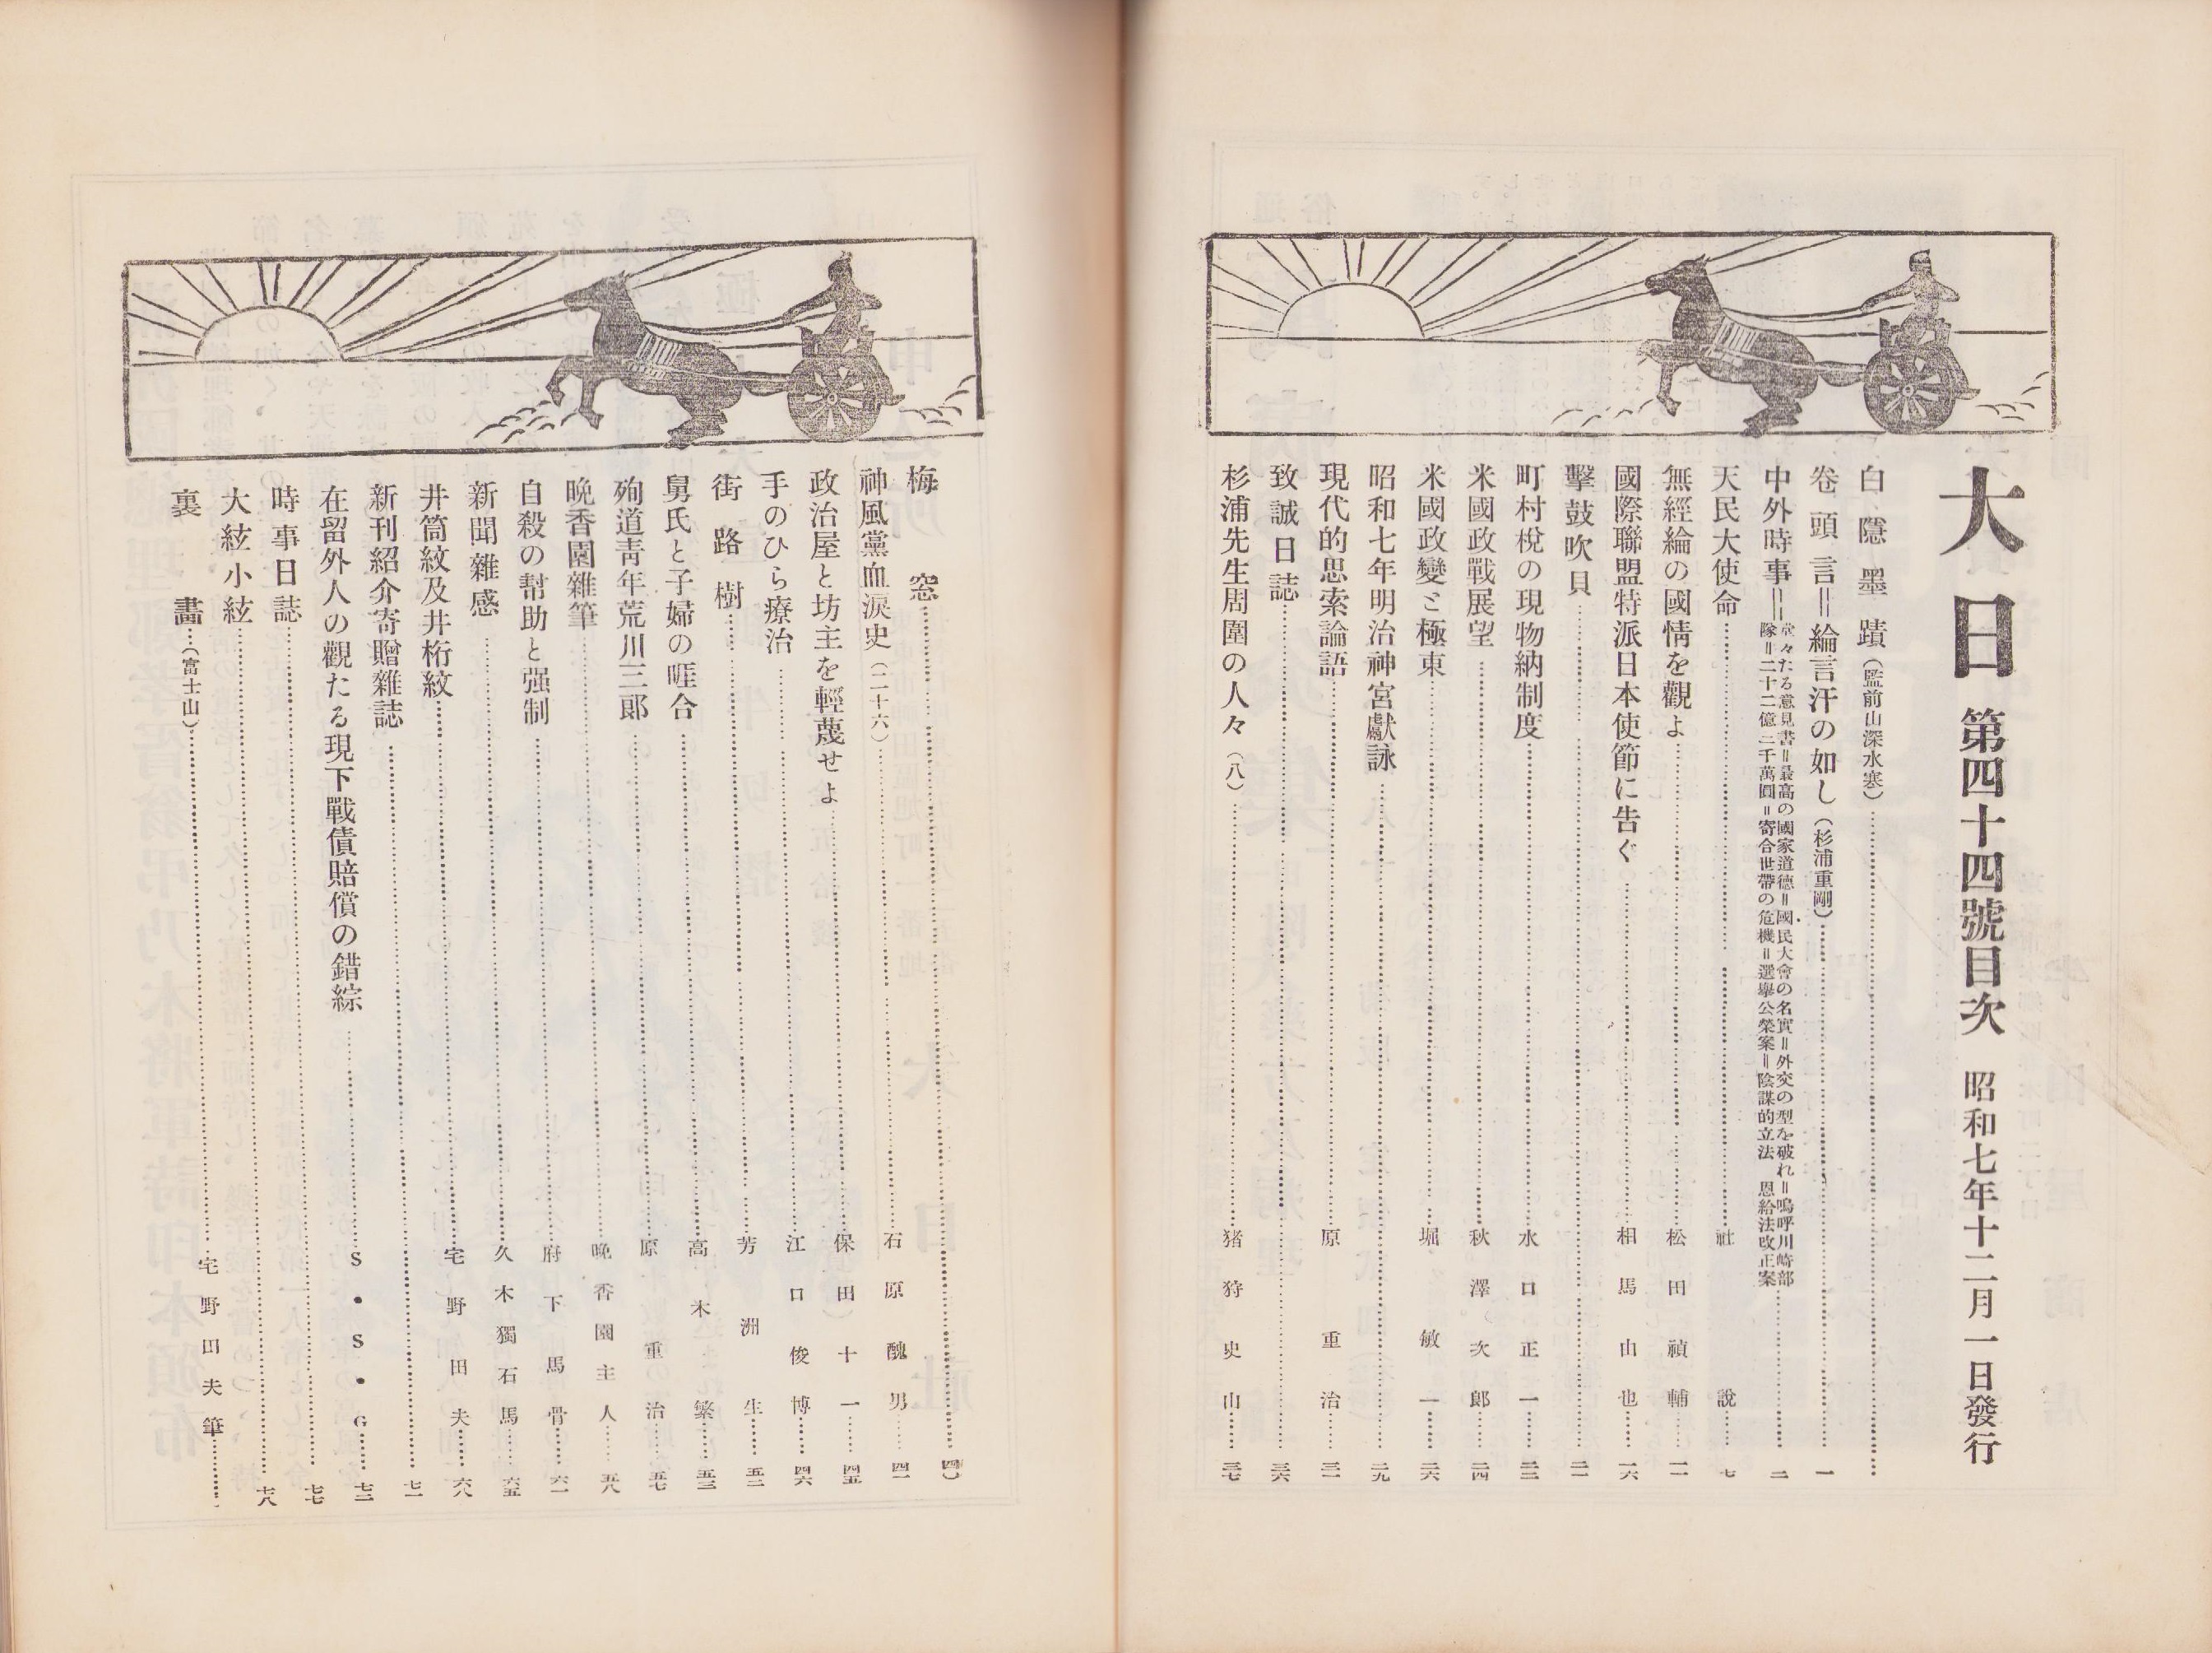 大日 第四十四號目次 昭和七年十二月一日發行
白隱墨蹟(監前山深水寒)
卷頭言=綸言汗の如し(杉浦重剛)一
中外時事=堂々たる意見書=最高の國家道德=國民大會の名實=外交の型を破れ=嗚呼川崎部
隊=二十二億二千萬圓=寄合世帶の危機=選擧公榮案=陰謀的立法 恩給法改正案 二
天民大使命 社說 七
無經綸の國情を觀よ 松田禎輔 一一
國際聯盟特派日本使節に告ぐ 相馬由也 一六
擊鼓吹貝 二一
町村稅の現物納制度 水口正一 二二
米國政戰展望 秋澤次郞 二四
米國政變と極東 堀敏一 二六
昭和七年明治神宮獻詠 二九
現代的思索論語 原重治 三一
致誠日誌 三六
杉浦先生周圍の人々(八) 猪狩史山 三七
梅窓
神風黨血淚史(二十六) 石原醜男 四一
政治屋と坊主を輕蔑せよ 保田十一 四五
手のひら療治 江口俊博 四六
街路樹 芳洲生 五二
舅氏と子婦の啀合 高木繁 五三
殉道靑年荒川三郞 原重治 五七
晚香園雜筆 晚香園主人 五八
自殺の幇助と强制 府下馬骨 六一
新聞雜感 久木獨石馬 六五
井筒紋及井桁紋 宅野田夫 六八
新刊紹介寄贈雜誌 七一
在留外人の觀たる現下戰債賠償の錯綜 S・S・G 七二
時事日誌 七七
大絃小絃 七八
裏畫(富士山) 宅野田夫筆